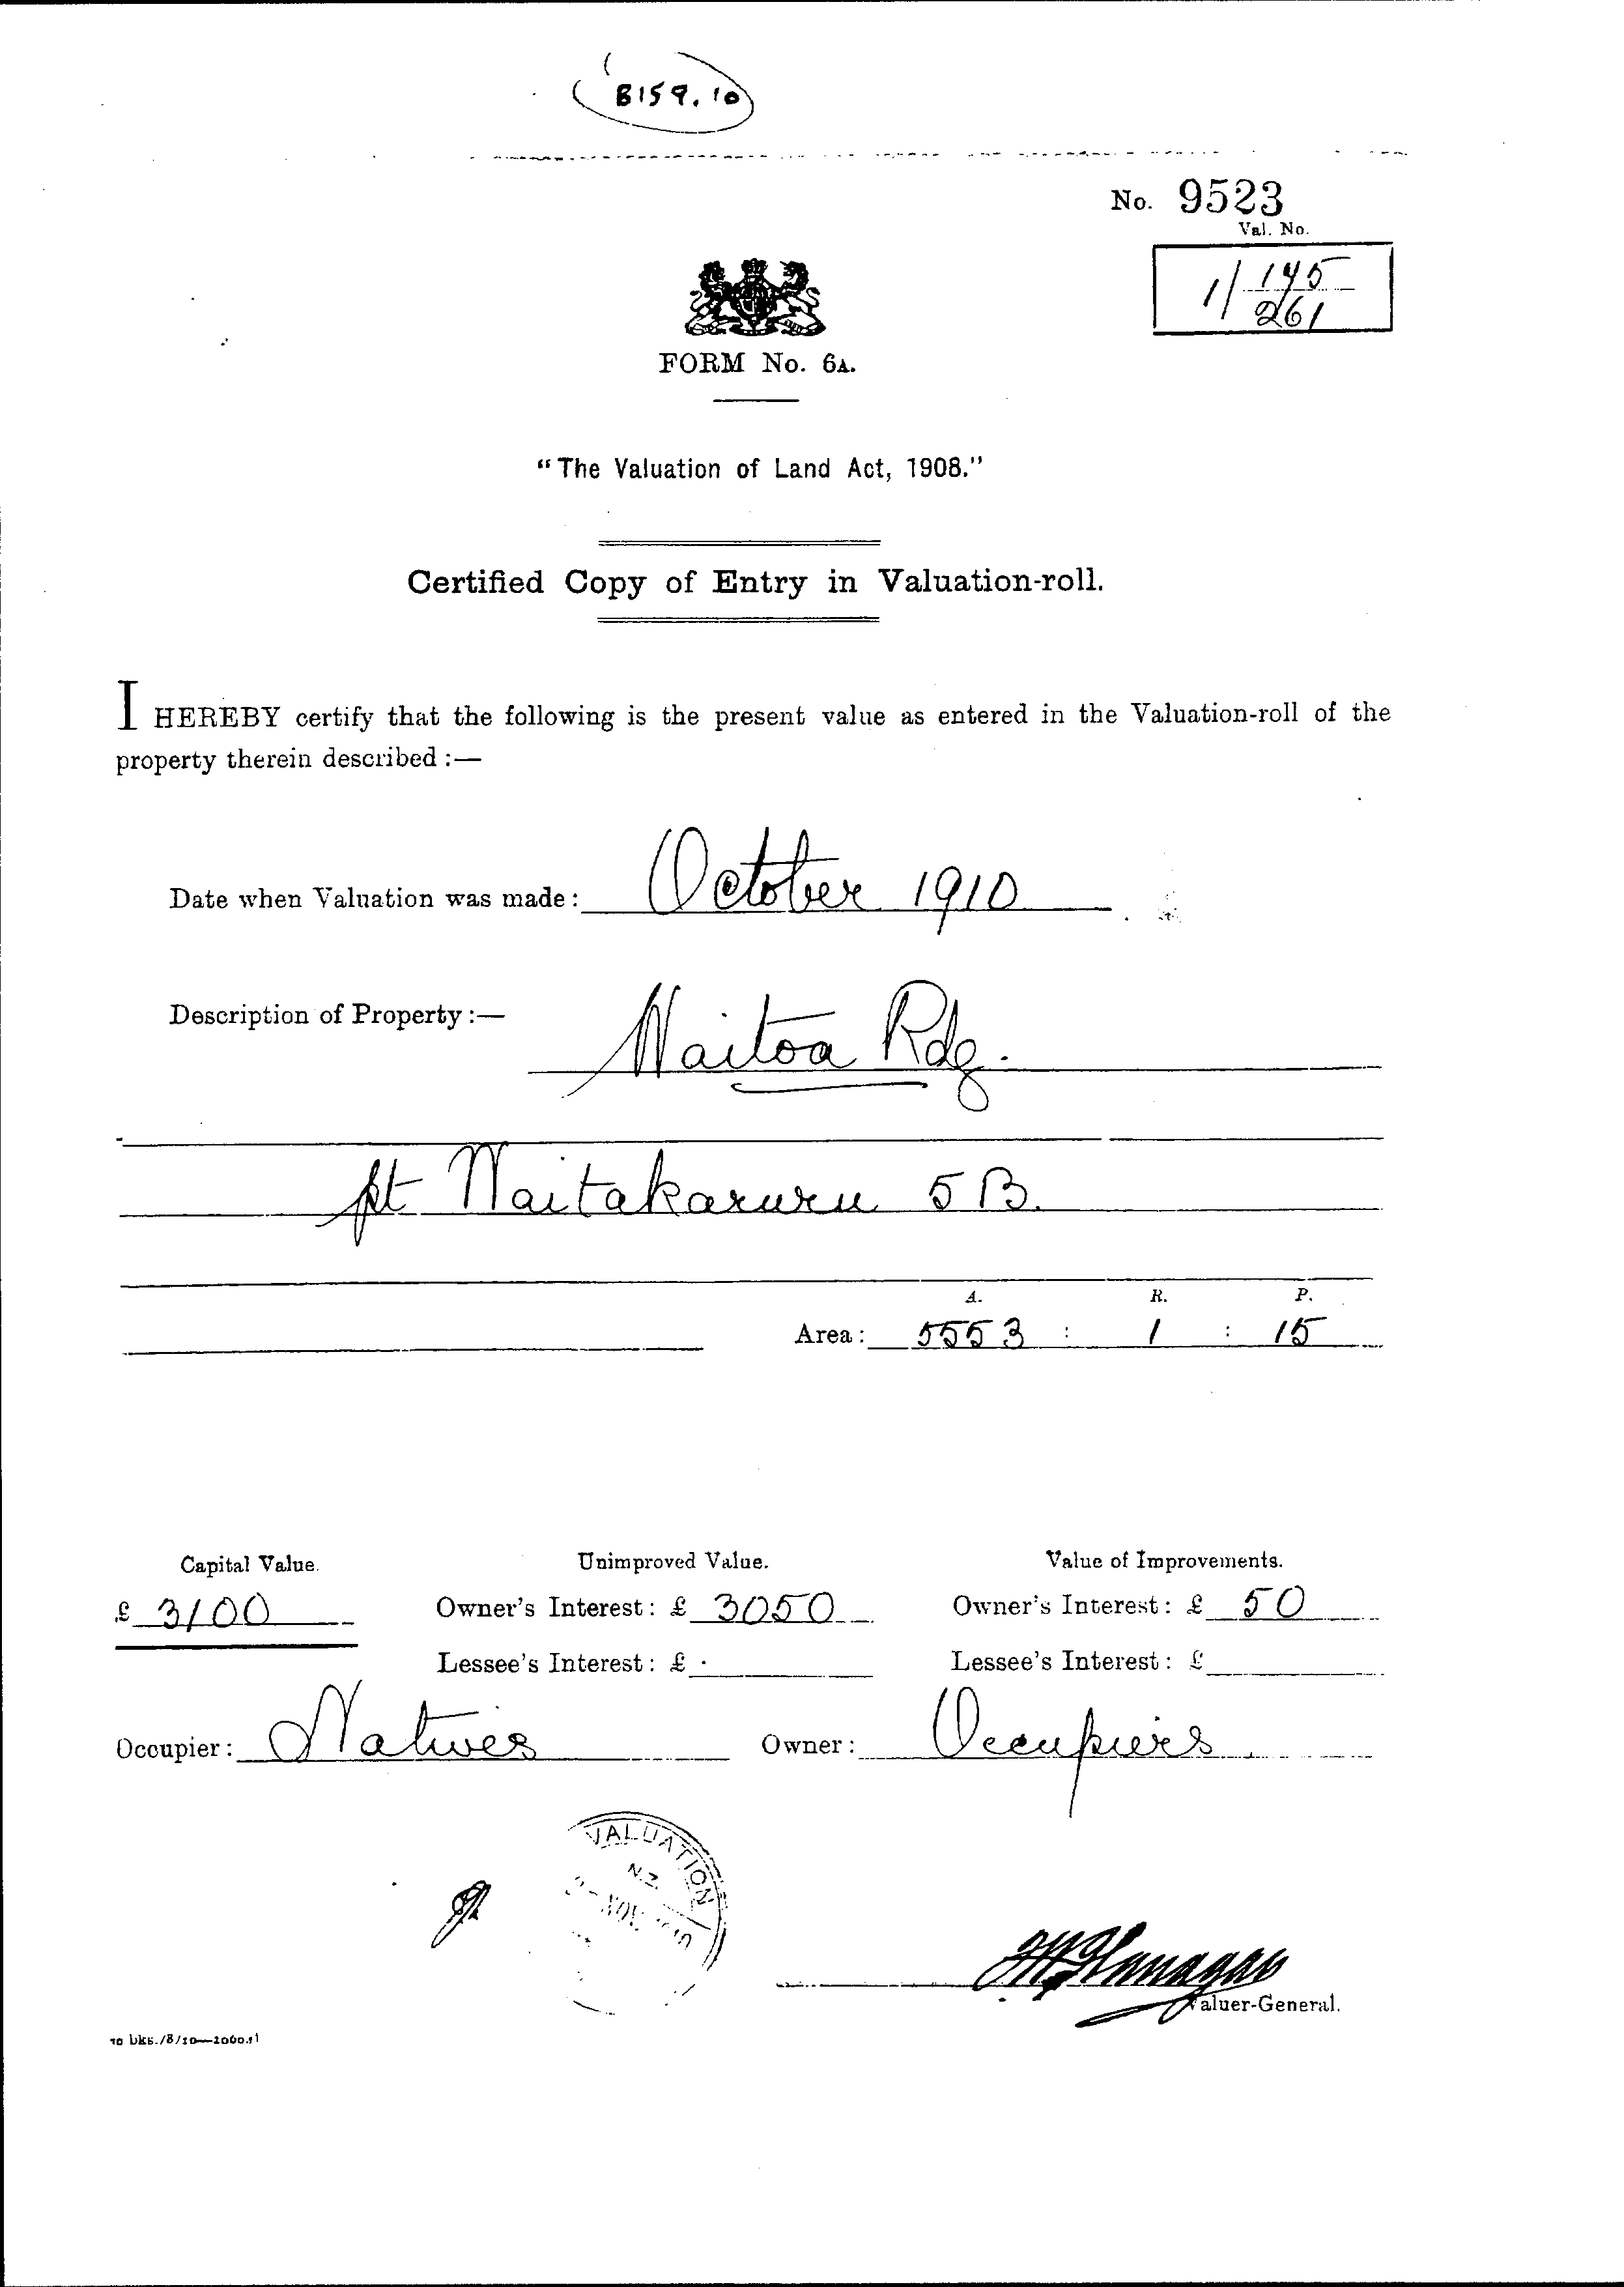 B159.10
No. 9523
Val. No.
1/ 145
261
FORM No. 6A.
"The Valuation of Land Act, 1908."
Certified Copy of Entry in Valuation-roll.
I HEREBY certify that the following is the present value as entered in the Valuation-roll of the
property therein described :—
Date when Valuation was made: October 1910
Description of Property :—
Waitoa Rdg.
pt Waitakaruru 5B.
A. R. P.
Area: 5553 : 1 : 15
Capital Value. Unimproved Value. Value of Improvements.
£ 3100 Owner's Interest: £ 3050 Owner's Interest: £ 50
Lessee's Interest: £ Lessee's Interest: £
Occupier: Natives Owner: Occupiers
VALUATION
N.Z.
NOV
Valuer-General.